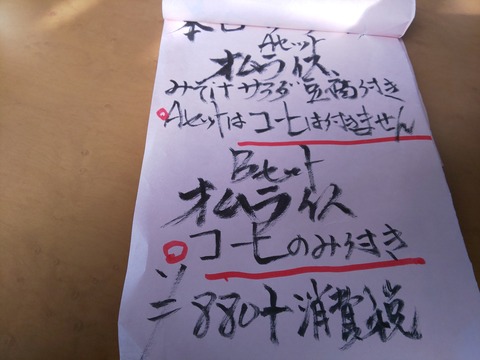 本日
Aセット
オムライス、
みそ汁 サラダ 豆腐付き
Aセットはコーヒは付きません
Bセット
オムライス
コーヒのみ付き
ソ
= 880+消費税